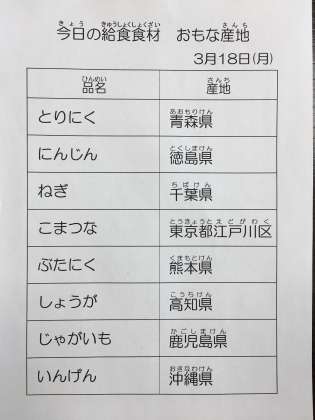 今日の給食食材　おもな産地
3月18日(月)
品名 産地
とりにく 青森県
にんじん 徳島県
ねぎ 千葉県
こまつな 東京都江戸川区
ぶたにく 熊本県
しょうが 高知県
じゃがいも 鹿児島県
いんげん 沖縄県